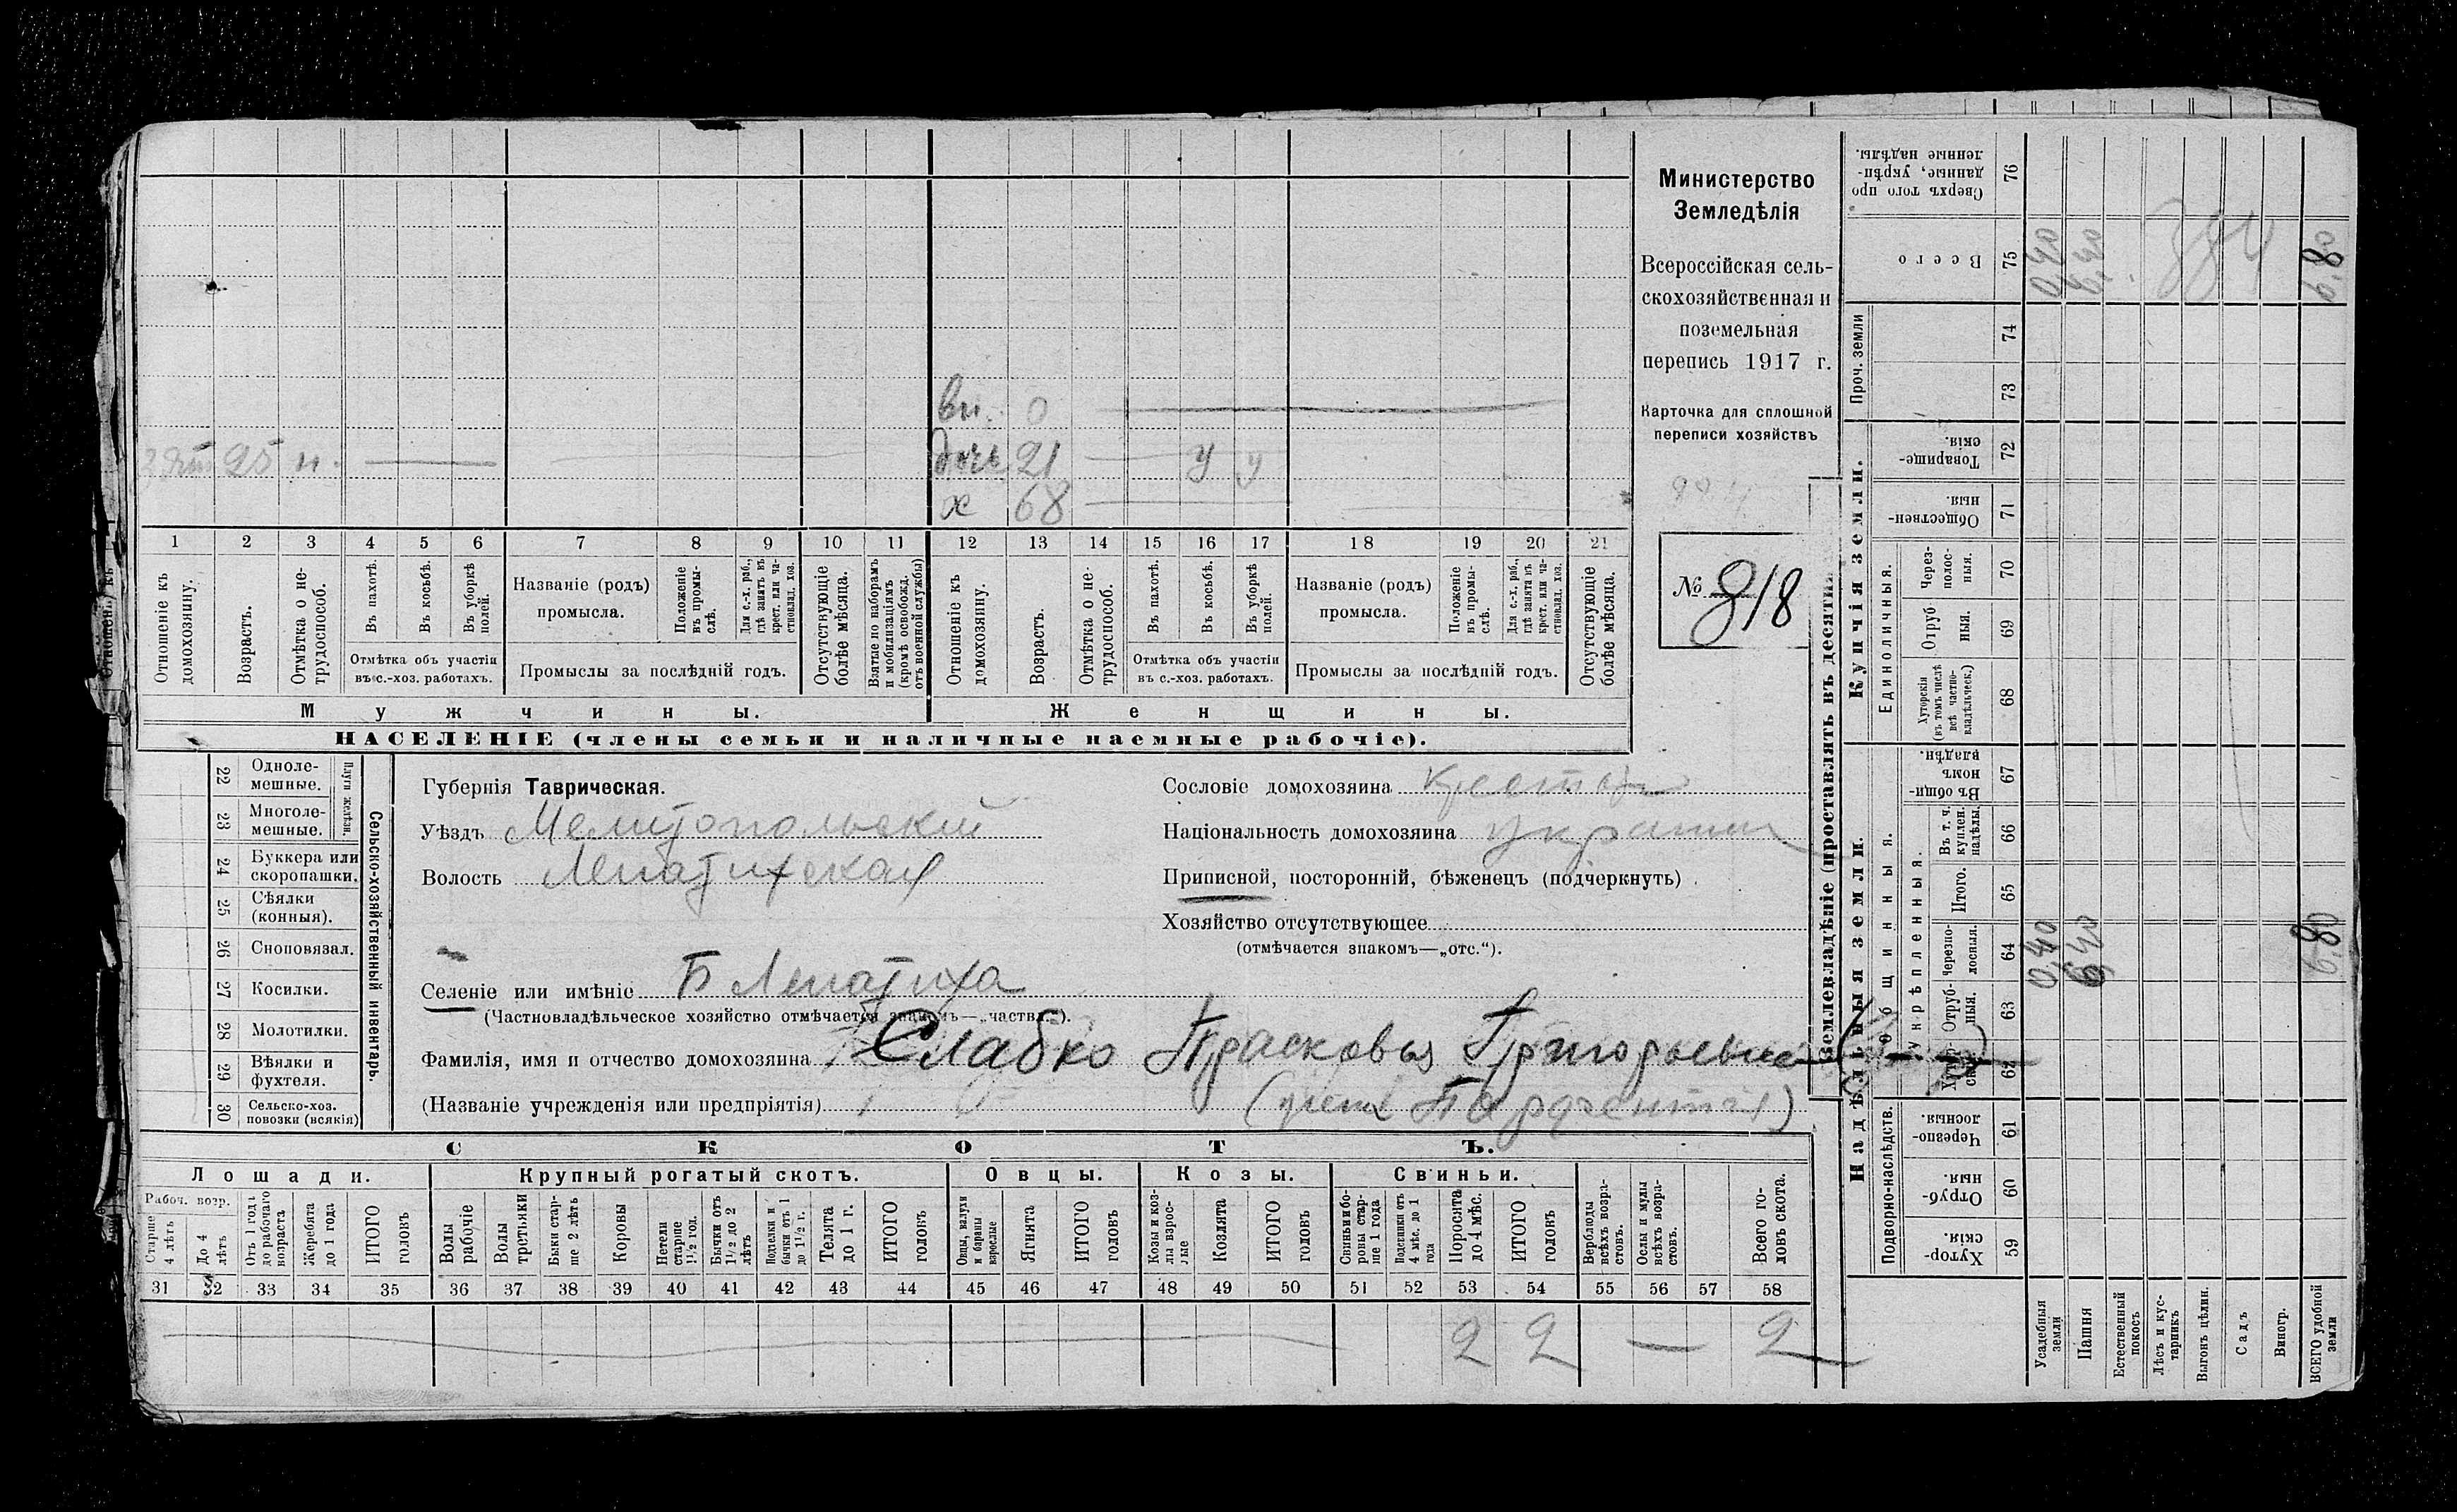 вн. 0
дочь 21 у у
зять 25 н.
х 68
1 2 3 4 5 6 7 8 9 10 11 12 13 14 15 16 17 18 19 20 21
Отношеніе къ домохозяину.
Возрастъ.
Отмѣтка о не-трудоспособ.
Въ пахотѣ.
Въ косьбѣ.
Въ уборкѣ полей.
Отмѣтка объ участіи въ с.-хоз. работахъ.
Названіе (родъ) промысла.
Положеніе въ промы-слѣ.
Для с.-х. раб., гдѣ занятъ въ крест. или ча-стновлад. хоз.
Промыслы за послѣдній годъ.
Отсутствующіе болѣе мѣсяца.
Взятые по наборамъ и мобилизаціямъ (кромѣ освобожд. отъ военной службы)
Отношеніе къ домохозяину.
Возрастъ.
Отмѣтка о не-трудоспособ.
Въ пахотѣ.
Въ косьбѣ.
Въ уборкѣ полей.
Отмѣтка объ участіи въ с.-хоз. работахъ.
Названіе (родъ) промысла.
Положеніе въ промы-слѣ.
Для с.-х. раб., гдѣ занятъ въ крест. или ча-стновлад. хоз.
Промыслы за послѣдній годъ.
Отсутствующіе болѣе мѣсяца.
Мужчины. Женщины.
НАСЕЛЕНІЕ (члены семьи и наличные наемные рабочіе).
Министерство
Земледѣлія
Всероссійская сель-
скохозяйственная и
поземельная
перепись 1917 г.
Карточка для сплошной
переписи хозяйствъ
№ 818
Сельско-хозяйственный инвентарь.
Плуги желѣзн.
22 Одноле-мешные.
23 Многоле-мешные.
24 Буккера или скоропашки.
25 Сѣялки (конныя).
26 Сноповязал.
27 Косилки.
28 Молотилки.
29 Вѣялки и фухтеля.
30 Сельско-хоз. повозки (всякія)
Губернія Таврическая.
Уѣздъ Мелитопольскій
Волость Лепатихская
Селеніе или имѣніе Б Лепатиха
(Частновладѣльческое хозяйство отмѣчается знакомъ—„частн.“).
Фамилія, имя и отчество домохозяина Слабко Прасковья Григорьевна
(Названіе учрежденія или предпріятія)
Сословіе домохозяина крестьян
Національность домохозяина украин
Приписной, посторонній, бѣженецъ (подчеркнуть).
Хозяйство отсутствующее
(отмѣчается знакомъ—„отс.“).
СКОТЪ.
Лошади. Крупный рогатый скотъ. Овцы. Козы. Свиньи.
Рабоч. возр.
Старше 4 лѣтъ
До 4 лѣтъ
Отъ 1 года до рабочаго возраста
Жеребята до 1 года
ИТОГО головъ
Волы рабочіе
Волы третьяки
Быки стар-ше 2 лѣтъ
Коровы
Нетели старше 1½ год.
Бычки отъ 1½ до 2 лѣтъ
Подтелки и бычки отъ 1 до 1½ г.
Телята до 1 г.
ИТОГО головъ
Овцы, валухи и бараны взрослые
Ягнята
ИТОГО головъ
Козы и коз-лы взрос-лые
Козлята
ИТОГО головъ
Свиньи и бо-ровы стар-ше 1 года
Подсвинки отъ 4 мѣс. до 1 года
Поросята до 4 мѣс.
ИТОГО головъ
Верблюды всѣхъ возра-стовъ.
Ослы и мулы всѣхъ возра-стовъ.
Всего го-ловъ скота.
31 32 33 34 35 36 37 38 39 40 41 42 43 44 45 46 47 48 49 50 51 52 53 54 55 56 57 58
2 2 — 2
Землевладѣніе (проставлять въ десятин
Надѣльныя земли.
Купчія земли.
Проч. земли
Подворно-наслѣдств.
Общинныя.
Укрѣпленныя.
Единоличныя.
Сверхъ того про данные, укрѣп-ленные надѣлы. 76
Всего 75 0,40 6,40 384 6,80
74
73
Товарище-скія. 72
Обществен-ныя. 71
Через-полос-ныя. 70
Отруб ныя. 69
Хуторскія (въ томъ числѣ всѣ частно-владѣльческ.) 68
Въ общи-номъ владѣн. 67
Въ т. ч. куплен. надѣлы. 66
Итого. 65
Черезпо-лосныя. 64 0,40 6,40 6,80
Отруб-ныя. 63
62
Черезпо-лосныя. 61
Отруб-ныя. 60
Хутор-скія. 59
Усадебныя земли
Пашня
Естественный покосъ
Лѣсъ и кус-тарникъ
Выгонъ цѣлин.
Садъ
Виногр.
ВСЕГО удобной земли